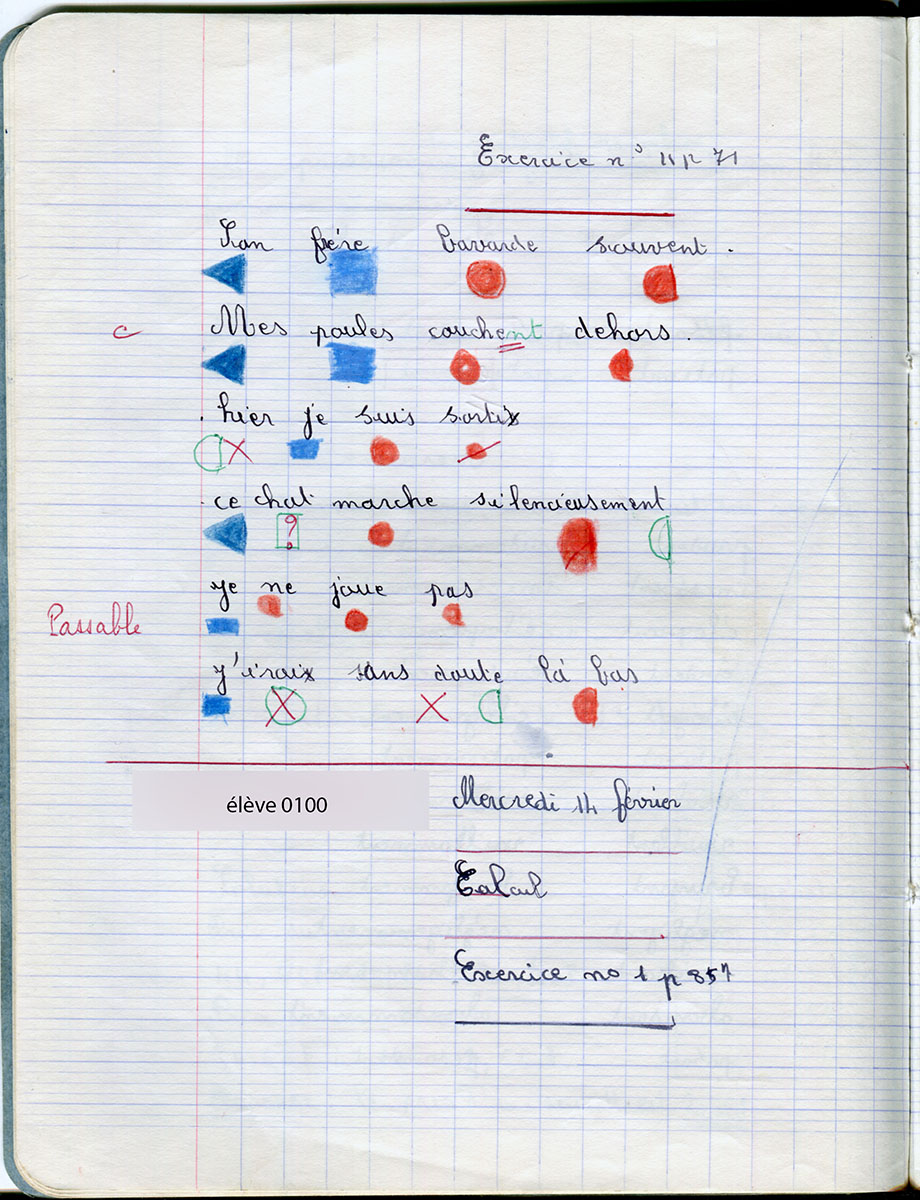 Exercice n° 11 p 71
Son frère bavarde souvent.
c
Mes poules couchent dehors.
hier je suis sorti
ce chat marche silencieusement
?
je ne joue pas
Passable
j'irai sans doute là bas
élève 0100
Mercredi 14 février
Calcul
Exercice no 1 p